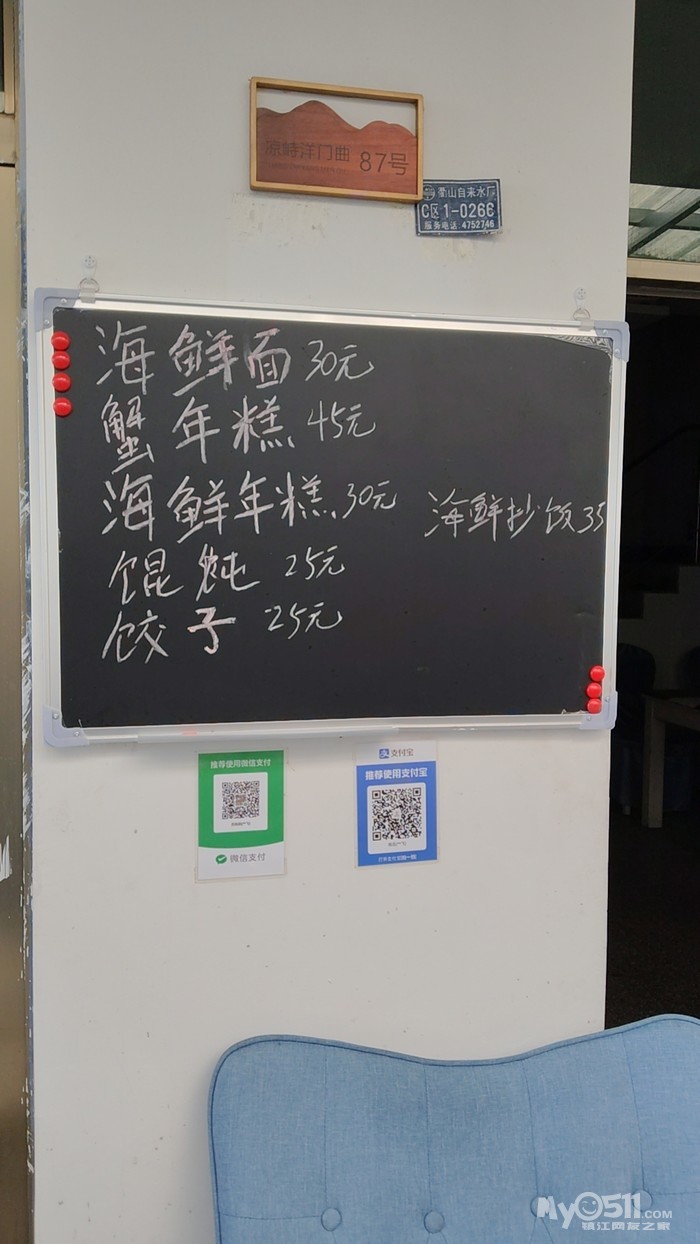 凉峙洋门曲 87号
衢山自来水厂
C区1-0266
服务电话:4752746
海鲜面 30元
蟹年糕 45元
海鲜年糕 30元
海鲜抄饭 35
馄炖 25元
饺子 25元
推荐使用微信支付
微信支付
支付宝
推荐使用支付宝
打开支付宝[扫一扫]
My0511.COM
镇江网友之家